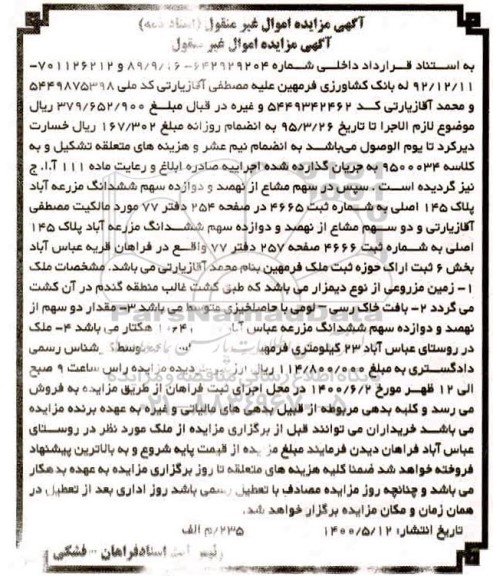 آگهی مزایده اموال غیر منقول (اسناد ذمه)
آگهی مزایده اموال غیر منقول
به استناد قرارداد داخلی شماره ۶۴۲۹۲۹۲۰۴- ۸۹/۹/۱۶ و ۷۰۱۱۲۶۲۱۲-
۹۲/۱۲/۱۱ له بانک کشاورزی فرمهین علیه مصطفی آقازیارتی کد ملی ۵۴۴۹۸۷۵۳۹۸
و محمد آقازیارتی کد ۵۴۴۹۳۴۲۴۶۲ و غیره در قبال مبلغ ۳۷۹/۶۵۲/۹۰۰ ریال
موضوع لازم الاجرا تا تاریخ ۹۵/۳/۲۶ به انضمام روزانه مبلغ ۱۶۷/۳۰۲ ریال خسارت
دیرکرد تا یوم الوصول می‌باشد به انضمام نیم عشر و هزینه های متعلقه تشکیل و به
کلاسه ۹۵۰۰۰۳۴ به جریان گذارده شده اجراییه صادره ابلاغ و رعایت ماده ۱۱۱ آ.ا. ج
نیز گردیده است . سپس دو سهم مشاع از نهصد و دوازده سهم ششدانگ مزرعه آباد
پلاک ۱۴۵ اصلی به شماره ثبت ۴۶۶۵ در صفحه ۲۵۴ دفتر ۷۷ مورد مالکیت مصطفی
آقازیارتی و دو سهم مشاع از نهصد و دوازده سهم ششدانگ مزرعه آباد پلاک ۱۴۵
اصلی به شماره ثبت ۴۶۶۶ صفحه ۲۵۷ دفتر ۷۷ واقع در فراهان قریه عباس آباد
بخش ۶ ثبت اراک حوزه ثبت ملک فرمهین بنام محمد آقازیارتی می باشد. مشخصات ملک
۱- زمین مزروعی از نوع دیمزار می باشد که طبق کشت غالب منطقه گندم در آن کشت
می گردد ۲- بافت خاک رسی - لومی با حاصلخیزی متوسط می باشد ۳- مقدار دو سهم از
نهصد و دوازده سهم ششدانگ مزرعه عباس آباد هکتار می باشد ۴- ملک
در روستای عباس آباد ۲۳ کیلومتری فرمهین توسط کارشناس رسمی
دادگستری به مبلغ ۱۱۴/۸۰۰/۰۰۰ ریال ارزیابی گردیده مزایده راس ساعت ۹ صبح
الی ۱۲ ظهر مورخ ۱۴۰۰/۶/۲ در محل اجرای ثبت فراهان از طریق مزایده به فروش
می رسد و کلیه بدهی مربوطه از قبیل بدهی های مالیاتی و غیره به عهده برنده مزایده
می باشد خریداران می توانند قبل از برگزاری مزایده از ملک مورد نظر در روستای
عباس آباد فراهان دیدن فرمایند مبلغ مزایده از قیمت پایه شروع و به بالاترین پیشنهاد
فروخته خواهد شد ضمنا کلیه هزینه های متعلقه تا روز برگزاری مزایده به عهده بدهکار
می باشد و چنانچه روز مزایده مصادف با تعطیل رسمی باشد روز اداری بعد از تعطیل در
همان زمان و مکان مزایده برگزار خواهد شد.
تاریخ انتشار: ۱۴۰۰/۵/۱۲ ۲۳۵/م الف
رئیس ثبت اسناد فراهان - فشکی